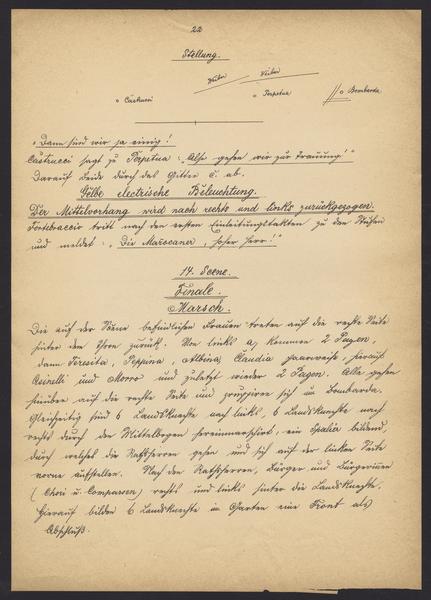 22
Stellung.
Weiber Weiber
Castrucci Perpetua Bombarda
"Dann sind wir ja einig!
Castrucci sagt zu Perpetua: "Also gehen wir zur Trauung!"
Darauf beide durch das Gitter c. ab.
Gelbe electrische Beleuchtung.
Der Mittelvorhang wird nach rechts und links zurückgezogen.
Fortebraccio tritt nach den ersten Einleitungstakten zu den Stufen
und meldet: "Die Malocaner, hoher Herr!"
14. Scene.
Finale.
Marsch.
Die auf der Scene befindlichen Frauen treten auf die rechte Seite
hinter dem Thore zurück. Von links a, kommen 2 Pagen,
dann Teresita, Peppina, Albina, Claudia paarweise, hierauf
Asinelli und Morro und zuletzt wieder 2 Pagen. Alle gehen
hinüber auf die rechte Seite und gruppiren sich um Bombarda.
Gleichzeitig sind 6 Landsknechte nach links, 6 Landsknechte nach
rechts durch den Mittelbogen hereinmarschirt, ein Spalier bildend,
durch welches die Rathsherren gehen und sich auf der linken Seite
vorne aufstellen. Nach den Rathsherren, Bürger und Bürgerinnen
(Chor u. Comparsen) rechts und links hinter die Landsknechte.
Hierauf bilden 6 Landsknechte im Garten eine Front als
Abschluß.